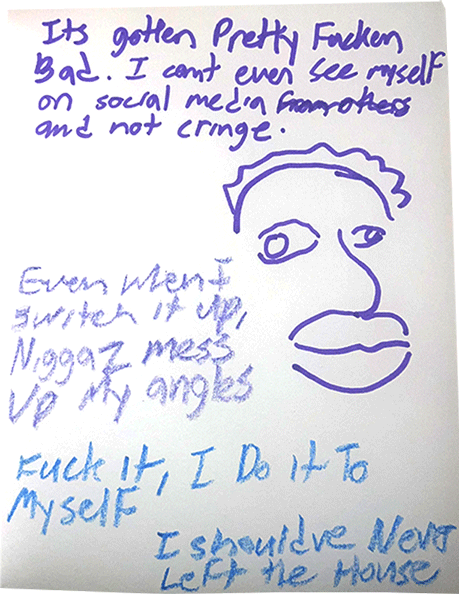 Its gotten Pretty Fucken
Bad. I cant even see myself
on social media from others
and not cringe.
Even when I
switch it up,
Niggaz mess
Up My angles
Fuck It, I Do It To
Myself
I should've Never
Left the House